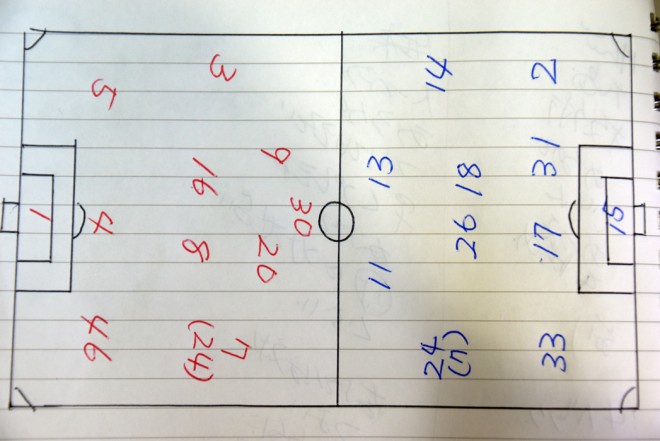 5
3
9
16
30
1
4
8
20
46
7
(24)
14
2
13
18
31
15
26
17
11
24
(7)
33